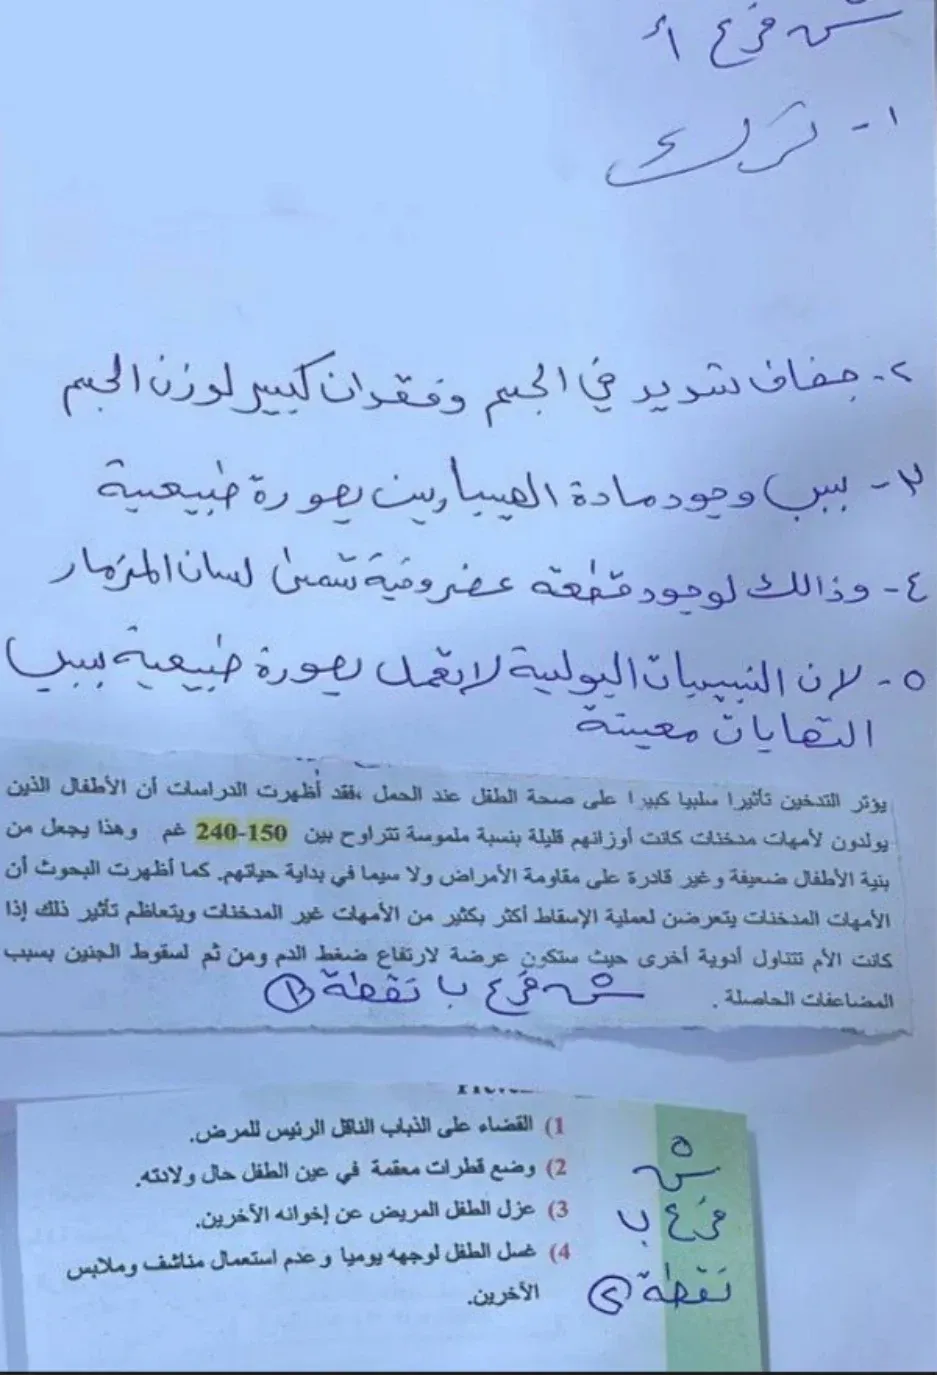 س٥ فرع أ
١- ترك
٢- جفاف شديد في الجسم وفقدان كبير لوزن الجسم
٣- بسبب وجود مادة الهيبارين بصورة طبيعية
٤- وذالك لوجود قطعة غضروفية تسمى لسان المزمار
٥- لان النبيبات البولية لا تعمل بصورة طبيعية بسبب
التهابات معينة
يؤثر التدخين تأثيرا سلبيا كبيرا على صحة الطفل عند الحمل ،فقد أظهرت الدراسات أن الأطفال الذين
يولدون لأمهات مدخنات كانت أوزانهم قليلة بنسبة ملموسة تتراوح بين 150-240 غم وهذا يجعل من
بنية الأطفال ضعيفة وغير قادرة على مقاومة الأمراض ولا سيما في بداية حياتهم. كما أظهرت البحوث أن
الأمهات المدخنات يتعرضن لعملية الإسقاط أكثر بكثير من الأمهات غير المدخنات ويتعاظم تأثير ذلك إذا
كانت الأم تتناول أدوية أخرى حيث ستكون عرضة لارتفاع ضغط الدم ومن ثم لسقوط الجنين بسبب
المضاعفات الحاصلة .
س٥ فرع ب نقطة ١
1) القضاء على الذباب الناقل الرئيس للمرض.
2) وضع قطرات معقمة في عين الطفل حال ولادته.
3) عزل الطفل المريض عن إخوانه الآخرين.
4) غسل الطفل لوجهه يوميا وعدم استعمال مناشف وملابس
الآخرين.
س٥
فرع ب
نقطة ٢